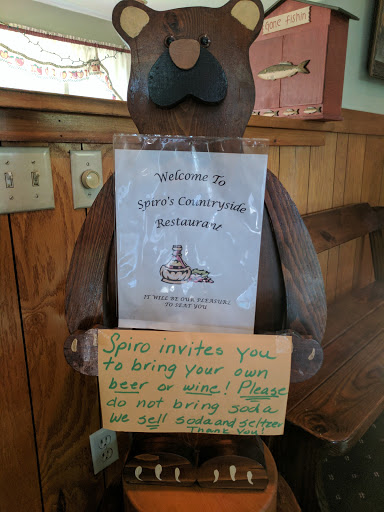 Gone Fishin
Welcome To
Spiro's Countryside
Restaurant
IT WILL BE OUR PLEASURE
TO SEAT YOU
Spiro invites you
to bring your own
beer or wine! Please
do not bring soda
We sell soda and seltzer
Thank You!